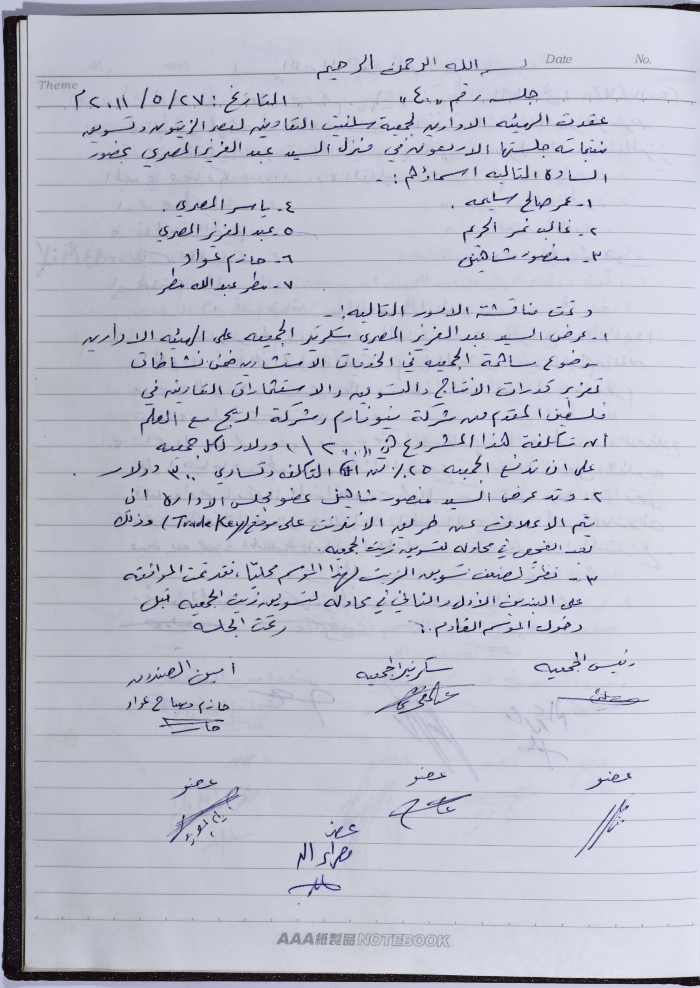 بسم الله الرحمن الرحيم
Date
No.
Theme
جلسة رقم "٤٠" التاريخ: ٢٠١١/٥/٢٧م
عقدت الهيئة الادارية لجمعية سلفيت التعاونية لعصر الزيتون وتسويق
منتجاته جلستها الاربعون في منزل السيد عبد العزيز المصري بحضور
السادة التالية اسماؤهم:
١- عمر صالح سليمه. ٤- ياسر المصري.
٢- غالب نمر الحريم ٥- عبد العزيز المصري
٣- منصور شاهين ٦- حازم عواد
٧- مطر عبدالله مطر
وتمت مناقشة الامور التالية:-
١- عرض السيد عبد العزيز المصري سكرتير الجمعيه على الهيئه الادارية
موضوع مساهمة الجمعيه في الخدمات الاستشارية ضمن نشاطات
تعزيز قدرات الانتاج والتسويق والاستثمارات التعاونية في
فلسطين المقدم من شركة نيوفارم وشركة الربح مع العلم
أن تكلفة هذا المشروع هي ١٢٠٠٠ دولار لكل جمعيه
على ان تدفع الجمعيه ٢٥٪ من التكلفه وتساوي ٣٠٠٠ دولار.
٢- وقد عرض السيد منصور شاهين عضو مجلس الادارة ان
يتم الاعلان عن طريق الانترنت على موقع (Trade Key) وذلك
بعد الفحص في محاوله لتسويق زيت الجمعيه.
٣- نظرً لضعف تسويق الزيت لهذا الموسم محلياً، فقد تمت الموافقه
على البندين الاول والثاني في محاوله لتسويق زيت الجمعيه قبل
دخول الموسم القادم. رفعت الجلسه
رئيس الجمعيه سكرتير الجمعيه أمين الصندوق
حازم مصباح عواد
عضو عضو عضو
عضو
AAA紙製品 NOTEBOOK